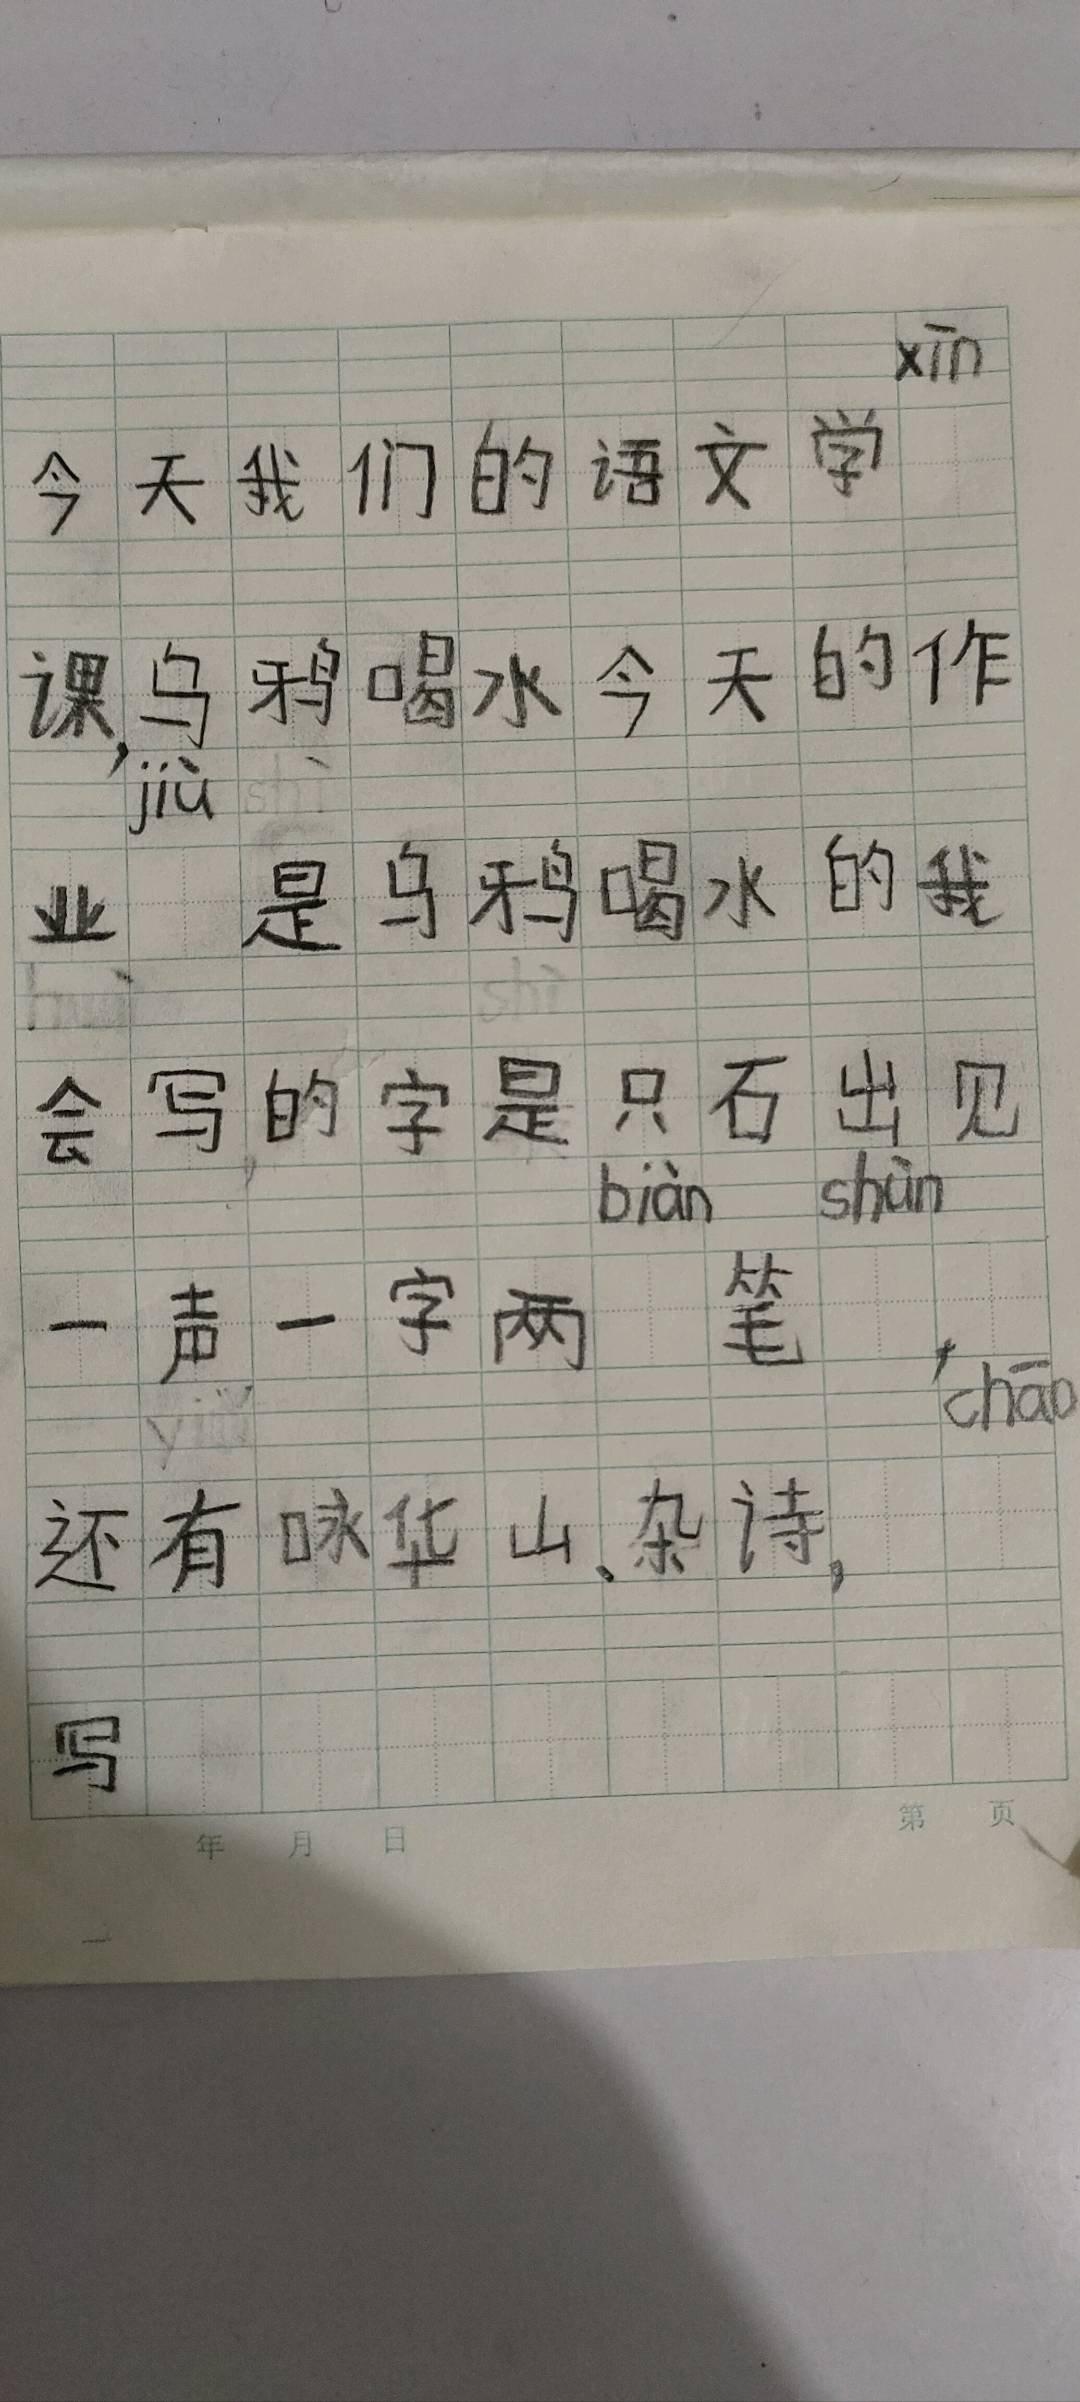 xīn
今天我们的语文学
课,乌鸦喝水今天的作
jiù shì
业 是乌鸦喝水的我
huì shì
会写的字是只石出见
biàn shùn
一声一字两 笔 ,
yǒu chāo
还有咏华山、杂诗,
写
年 月 日 第 页